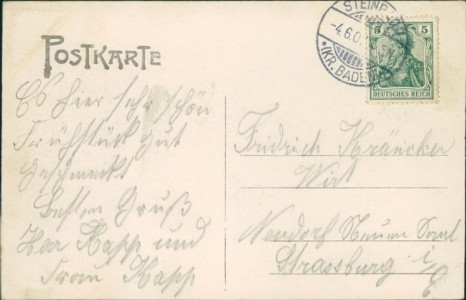 POSTKARTE
STEINB
-4.6.0
*(KR. BADEN
5 5
DEUTSCHES REICH
Es hier sehr schön
Frühstück gut
Geschmeckt
besten Gruß
Herr Happ und
Frau Happ
Fridrich Kräncker
Wirt
Neudorf Neuen
Strassburg i/E